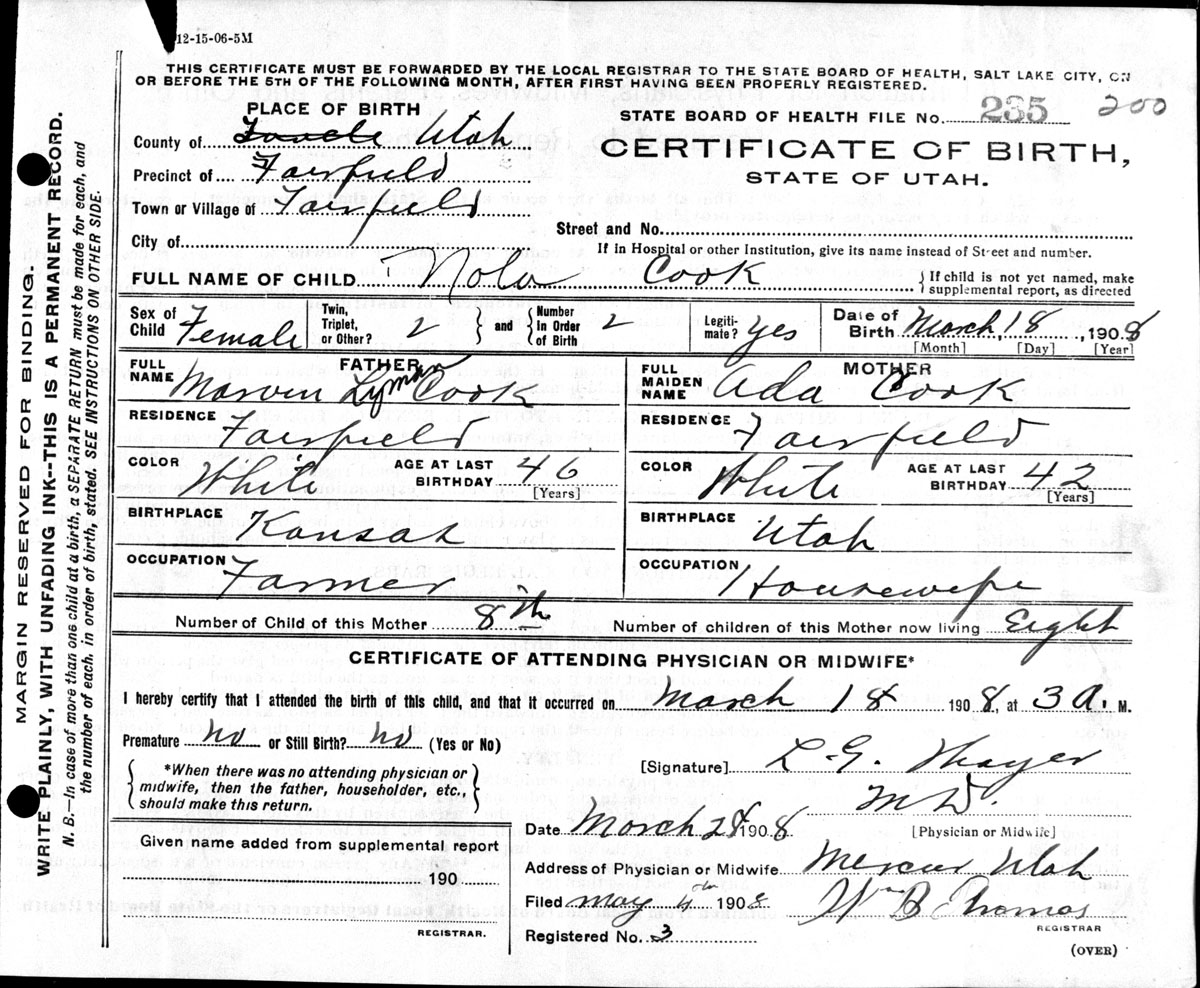 12-15-06-5M
THIS CERTIFICATE MUST BE FORWARDED BY THE LOCAL REGISTRAR TO THE STATE BOARD OF HEALTH, SALT LAKE CITY, ON
OR BEFORE THE 5TH OF THE FOLLOWING MONTH, AFTER FIRST HAVING BEEN PROPERLY REGISTERED.
PLACE OF BIRTH
STATE BOARD OF HEALTH FILE No. 235 200
County of Tooele Utah
CERTIFICATE OF BIRTH,
Precinct of Fairfield
STATE OF UTAH.
Town or Village of Fairfield
Street and No.
City of
If in Hospital or other Institution, give its name instead of Street and number.
FULL NAME OF CHILD Nola Cook
{ If child is not yet named, make
supplemental report, as directed
Sex of Child Female
Twin, Triplet, or Other? 2 } and { Number In Order of Birth 2
Legiti-mate? yes
Date of Birth March 18, 1908
[Month] [Day] [Year]
FATHER
FULL NAME Marvin Lyman Cook
RESIDENCE Fairfield
COLOR White
AGE AT LAST BIRTHDAY 46
[Years]
BIRTHPLACE Kansas
OCCUPATION Farmer
MOTHER
FULL MAIDEN NAME Ada Cook
RESIDENCE Fairfield
COLOR White
AGE AT LAST BIRTHDAY 42
[Years]
BIRTHPLACE Utah
OCCUPATION Housewife
Number of Child of this Mother 8th
Number of children of this Mother now living Eight
CERTIFICATE OF ATTENDING PHYSICIAN OR MIDWIFE*
I hereby certify that I attended the birth of this child, and that it occurred on March 18 1908, at 3 a. M.
Premature no or Still Birth? no (Yes or No)
{ *When there was no attending physician or
midwife, then the father, householder, etc.,
should make this return. }
[Signature] L. G. Thayer
M D.
[Physician or Midwife]
Date March 28 1908
Given name added from supplemental report
190
REGISTRAR.
Address of Physician or Midwife Mercur Utah
Filed may 4th 1908 Wm B Thomas
REGISTRAR
Registered No. 3
(OVER)
MARGIN RESERVED FOR BINDING.
WRITE PLAINLY, WITH UNFADING INK--THIS IS A PERMANENT RECORD.
N. B.—In case of more than one child at a birth, a SEPARATE RETURN must be made for each, and
the number of each, in order of birth, stated. SEE INSTRUCTIONS ON OTHER SIDE.